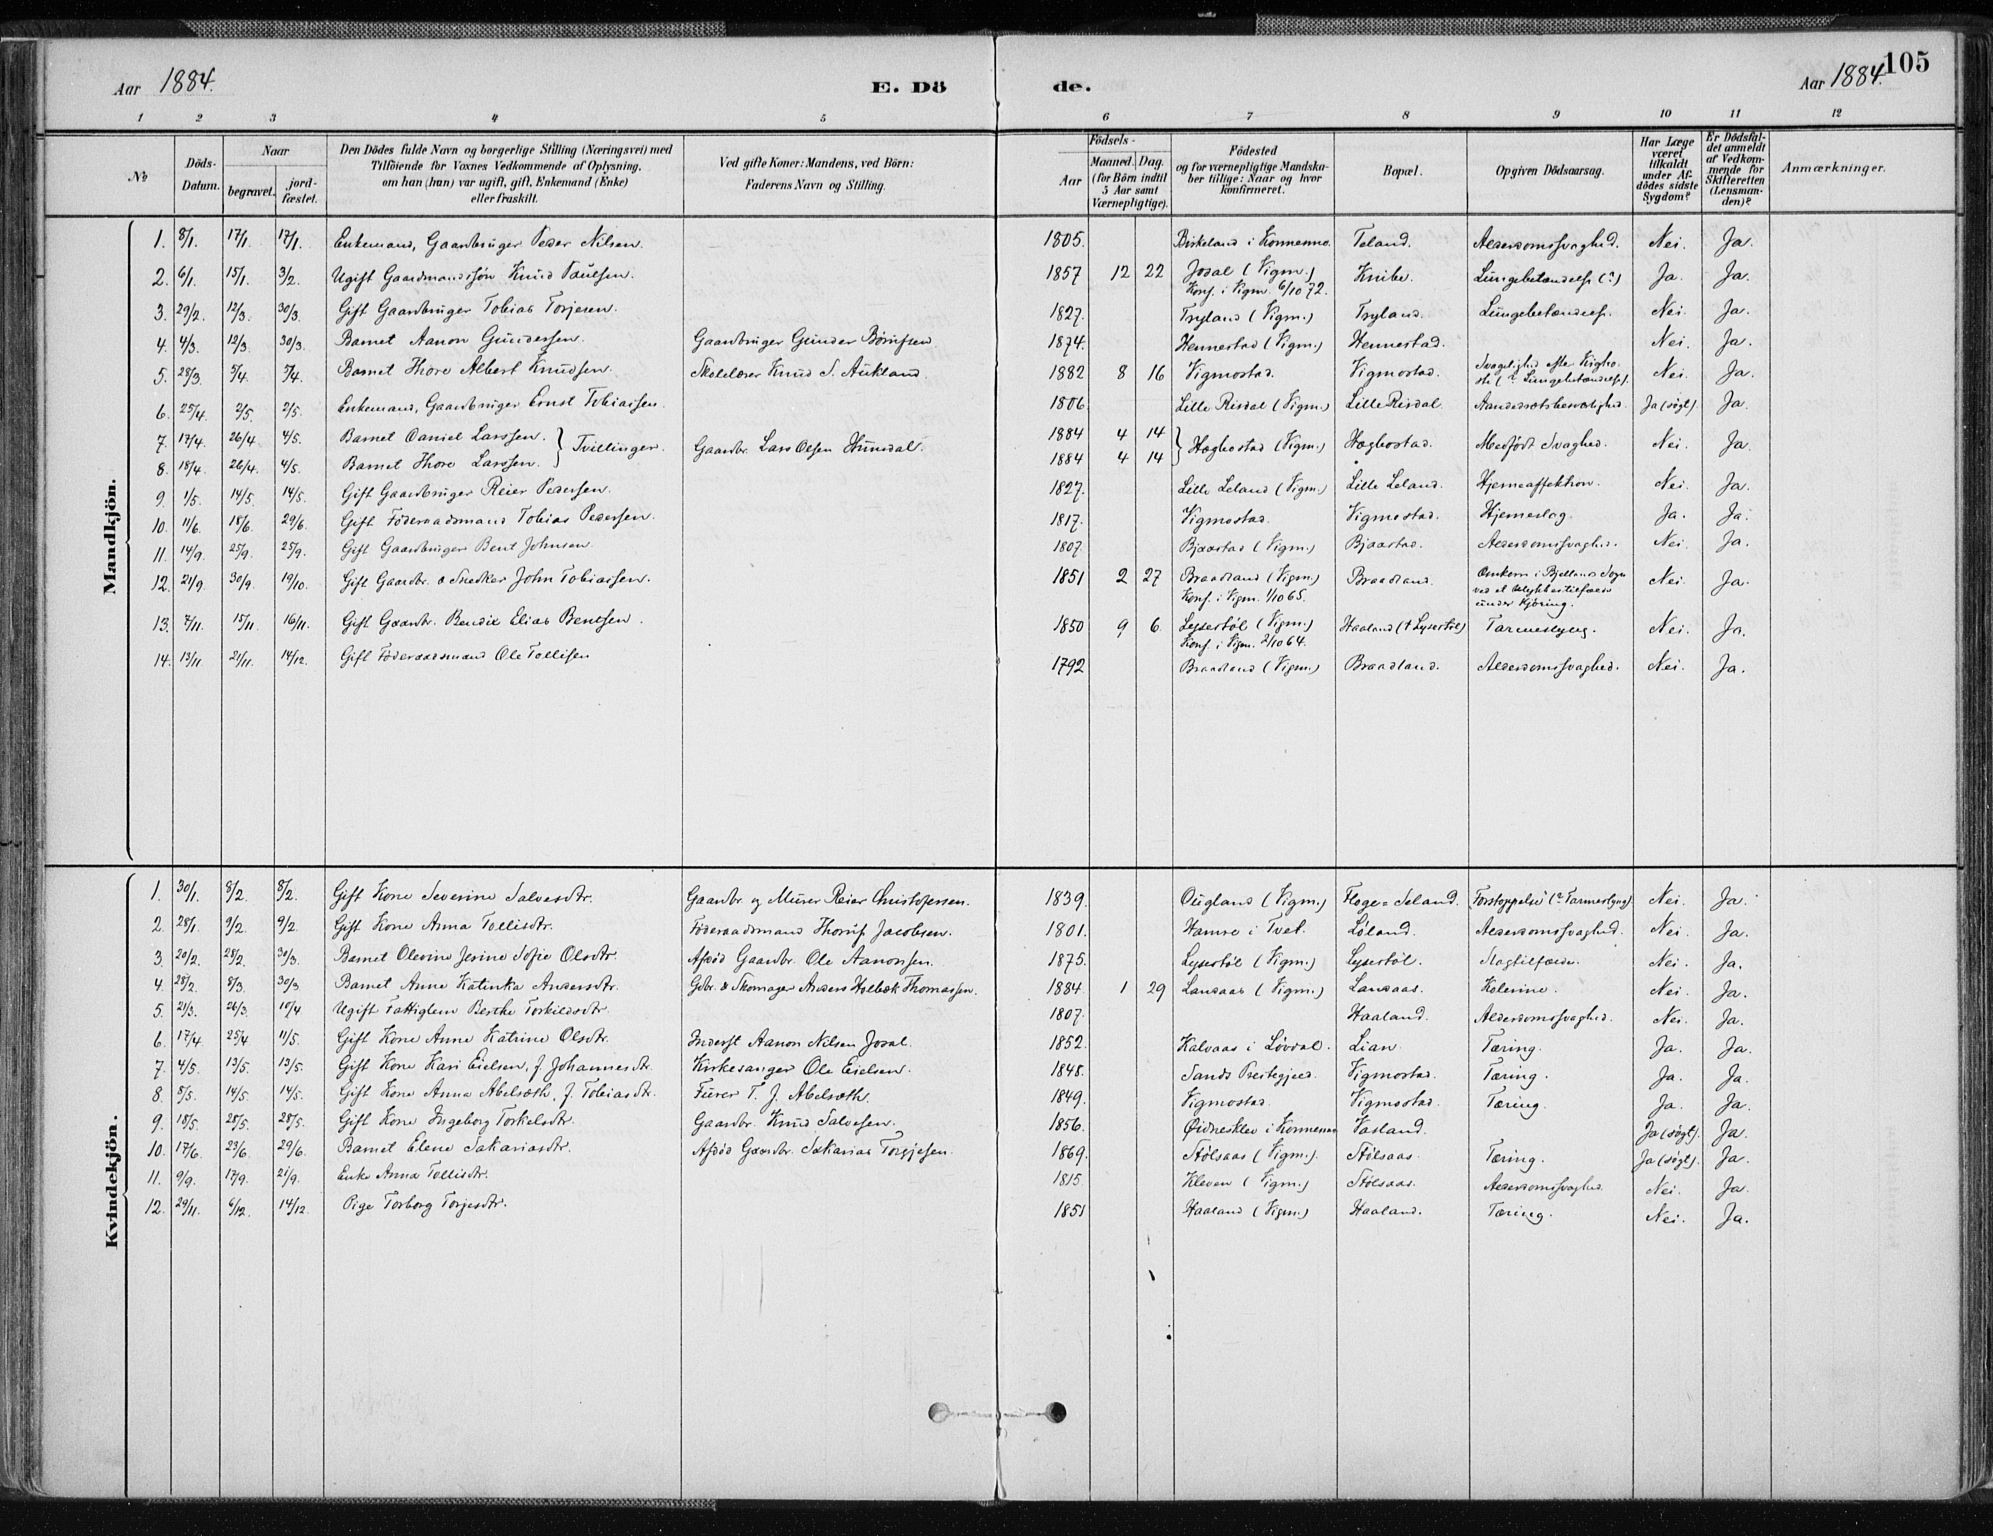 Aar 1884. E. Dö de. Aar 1884. 105
1 2 3 4 5 6 7 8 9 10 11 12
№ Döds-Datum. Naar begravet. jordfæstet. Den Dödes fulde Navn og borgerlige Stilling (Næringsvei) med Tilföiende for Voxnes Vedkommende af Oplysning, om han (hun) var ugift, gift, Enkemand (Enke) eller fraskilt. Ved gifte Koner: Mandens, ved Börn: Faderens Navn og Stilling. Födsels- Aar Maaned. Dag. (for Börn indtil 5 Aar samt Værnepligtige). Födested og for værnepligtige Mandskaber tillige: Naar og hvor konfirmeret. Bopæl. Opgiven Dödsaarsag. Har Læge været tilkaldt under Afdödes sidste Sygdom? Er Dödsfaldet anmeldt af Vedkommende for Skifteretten (Lensmanden)? Anmærkninger.
Mandkjön.
1. 8/1. 17/1. 17/1. Enkemand, Gaardbruger Peder Nilsen. 1805. Birkeland i Konnesmo. Teland. Alderdomssvaghed. Nei. Ja.
2. 6/1. 15/1. 3/2. Ugift Gaardmandssøn Knud Paulsen. 1857 12 22 Josal (Vigm.) Knibe. Lungebetændelse (?) Ja. Ja.
Konf. i Vigm. 6/10 72.
3. 29/2. 12/3. 30/3. Gift Gaardbruger Tobias Torjesen. 1827. Tryland (Vigm.) Tryland. Lungebetændelse. Nei. Ja.
4. 4/3. 12/3. 30/3. Barnet Aanon Gundersen. Gaardbruger Gunder Börufsen 1874. Hennestad (Vigm.) Hennestad. Nei. Ja.
5. 28/3. 5/4. 5/4. Barnet Thore Albert Knudsen. Skolelærer Knud S. Aukland. 1882 8 16 Vigmostad. Vigmostad. Svagelighed efter Kighoste (? Lungebetændelse). Nei. Ja.
6. 25/4. 2/5. 2/5. Enkemand, Gaardbruger Ernst Tobiassen. 1806. Lille Risdal (Vigm.) Lille Risdal. Aandedrætsbesværlighed. Ja (søgt). Ja.
7. 17/4. 26/4. 4/5. Barnet Daniel Larssen. } Tvillinger. Gaardbr. Lars Olsen Hunsdal. 1884 4 14 } Hægbostad (Vigm.) Hægbostad. Medfödt Svaghed. Nei. Ja.
8. 18/4. 26/4. 4/5. Barnet Thore Larssen. 1884 4 14
9. 1/5. 14/5. 14/5. Gift Gaardbruger Reier Pedersen. 1827. Lille Leland (Vigm.) Lille Leland. Hjerneaffektion. Nei. Ja.
10. 11/6. 18/6. 29/6. Gift Föderaadsmand Tobias Pedersen. 1817. Vigmostad. Vigmostad. Hjerneslag. Ja. Ja.
11. 14/9. 25/9. 25/9. Gift Gaardbruger Bent Johnsen. 1807. Bjaastad (Vigm.) Bjaastad. Alderdomssvaghed. Nei. Ja.
12. 21/9. 30/9. 19/10. Gift Gaardbr. o Snedker John Tobiassen. 1851 2 27 Braadland (Vigm.) Braadland. Omkom i Bjellands Sogn Nei. Ja.
Konf. i Vigm. 1/10 65. ved et Ulykkestilfælde under Kjöring.
13. 7/11. 15/11. 16/11. Gift Gaardbr. Bendix Elias Bentsen. 1850 9 6. Lysestöl (Vigm.) Haaland († Lysestöl) Tarmeslyng. Nei. Ja.
Konf. i Vigm. 2/10 64.
14. 13/11. 21/11. 14/12. Gift Föderaadsmand Ole Tollisen 1792 Braadland (Vigm.) Braadland. Alderdomssvaghed. Nei. Ja.
Kvindekjön.
1. 30/1. 8/2. 8/2. Gift Kone Severine Salvesdtr. Gaardbr. og Murer Reier Christofersen. 1839. Ougland (Vigm.) Floge-Seland. Forstoppelse (? Tarmeslyng). Nei. Ja.
2. 28/1. 9/2. 9/2. Gift Kone Anna Tollisdtr. Föderaadsmand Thoruf Jacobsen. 1801. Hamre i Tvet. Löland. Alderdomssvaghed. Nei. Ja.
3. 20/2. 28/2. 30/3. Barnet Olerine Jesine Sofie Olsdtr. Afdöd Gaardbr. Ole Aanonsen. 1875. Lysestöl (Vigm.) Lysestöl. Slagtilfælde. Nei. Ja.
4. 28/2. 8/3. 30/3. Barnet Anne Katinka Andersdtr. Gdbr. & Skomager Anders Holbæk Thomassen. 1884 1 29 Landaas (Vigm.) Landaas. Kolerine. Nei. Ja.
5. 21/3. 26/3. 10/4 Ugift Fattiglem Berthe Torkildsdtr. 1807. Haaland. Alderdomssvaghed. Nei. Ja.
6. 17/4 25/4 11/5. Gift Kone Anne Katrine Olsdtr. Inderst Aanon Nilsen Josal. 1852. Kalvaas i Lövdal. Lian. Tæring. Ja. Ja.
7. 4/5. 13/5. 13/5. Gift Kone Kari Eielsen, f. Johannesdtr. Kirkesanger Ole Eielsen. 1848. Sands Prestegjeld. Vigmostad. Tæring. Ja. Ja.
8. 5/5. 14/5. 14/5. Gift Kone Anna Abelsæth, f. Tobiasdtr. Furer T. J. Abelsæth. 1849. Vigmostad. Vigmostad. Tæring. Ja. Ja.
9. 18/5. 28/5. 28/5. Gift Kone Ingeborg Torkelsdtr. Gaardbr. Knud Salvesen. 1856. Öidnesklev i Konnesmo Vasland. Ja (søgt). Ja.
10. 17/6. 23/6. 29/6. Barnet Elene Sakariasdtr. Afdöd Gaardbr. Sakarias Torgjesen. 1869. Stölsaas (Vigm.). Stölsaas. Tæring. Ja (søgt). Ja.
11. 9/9. 17/9. 21/9. Enke Anna Tollisdtr. 1815. Kleven (Vigm.) Stölsaas. Alderdomssvaghed. Nei. Ja.
12. 29/11. 6/12. 14/12. Pige Torborg Torjesdtr. 1851 Haaland (Vigm.) Haaland. Tæring. Nei. Ja.